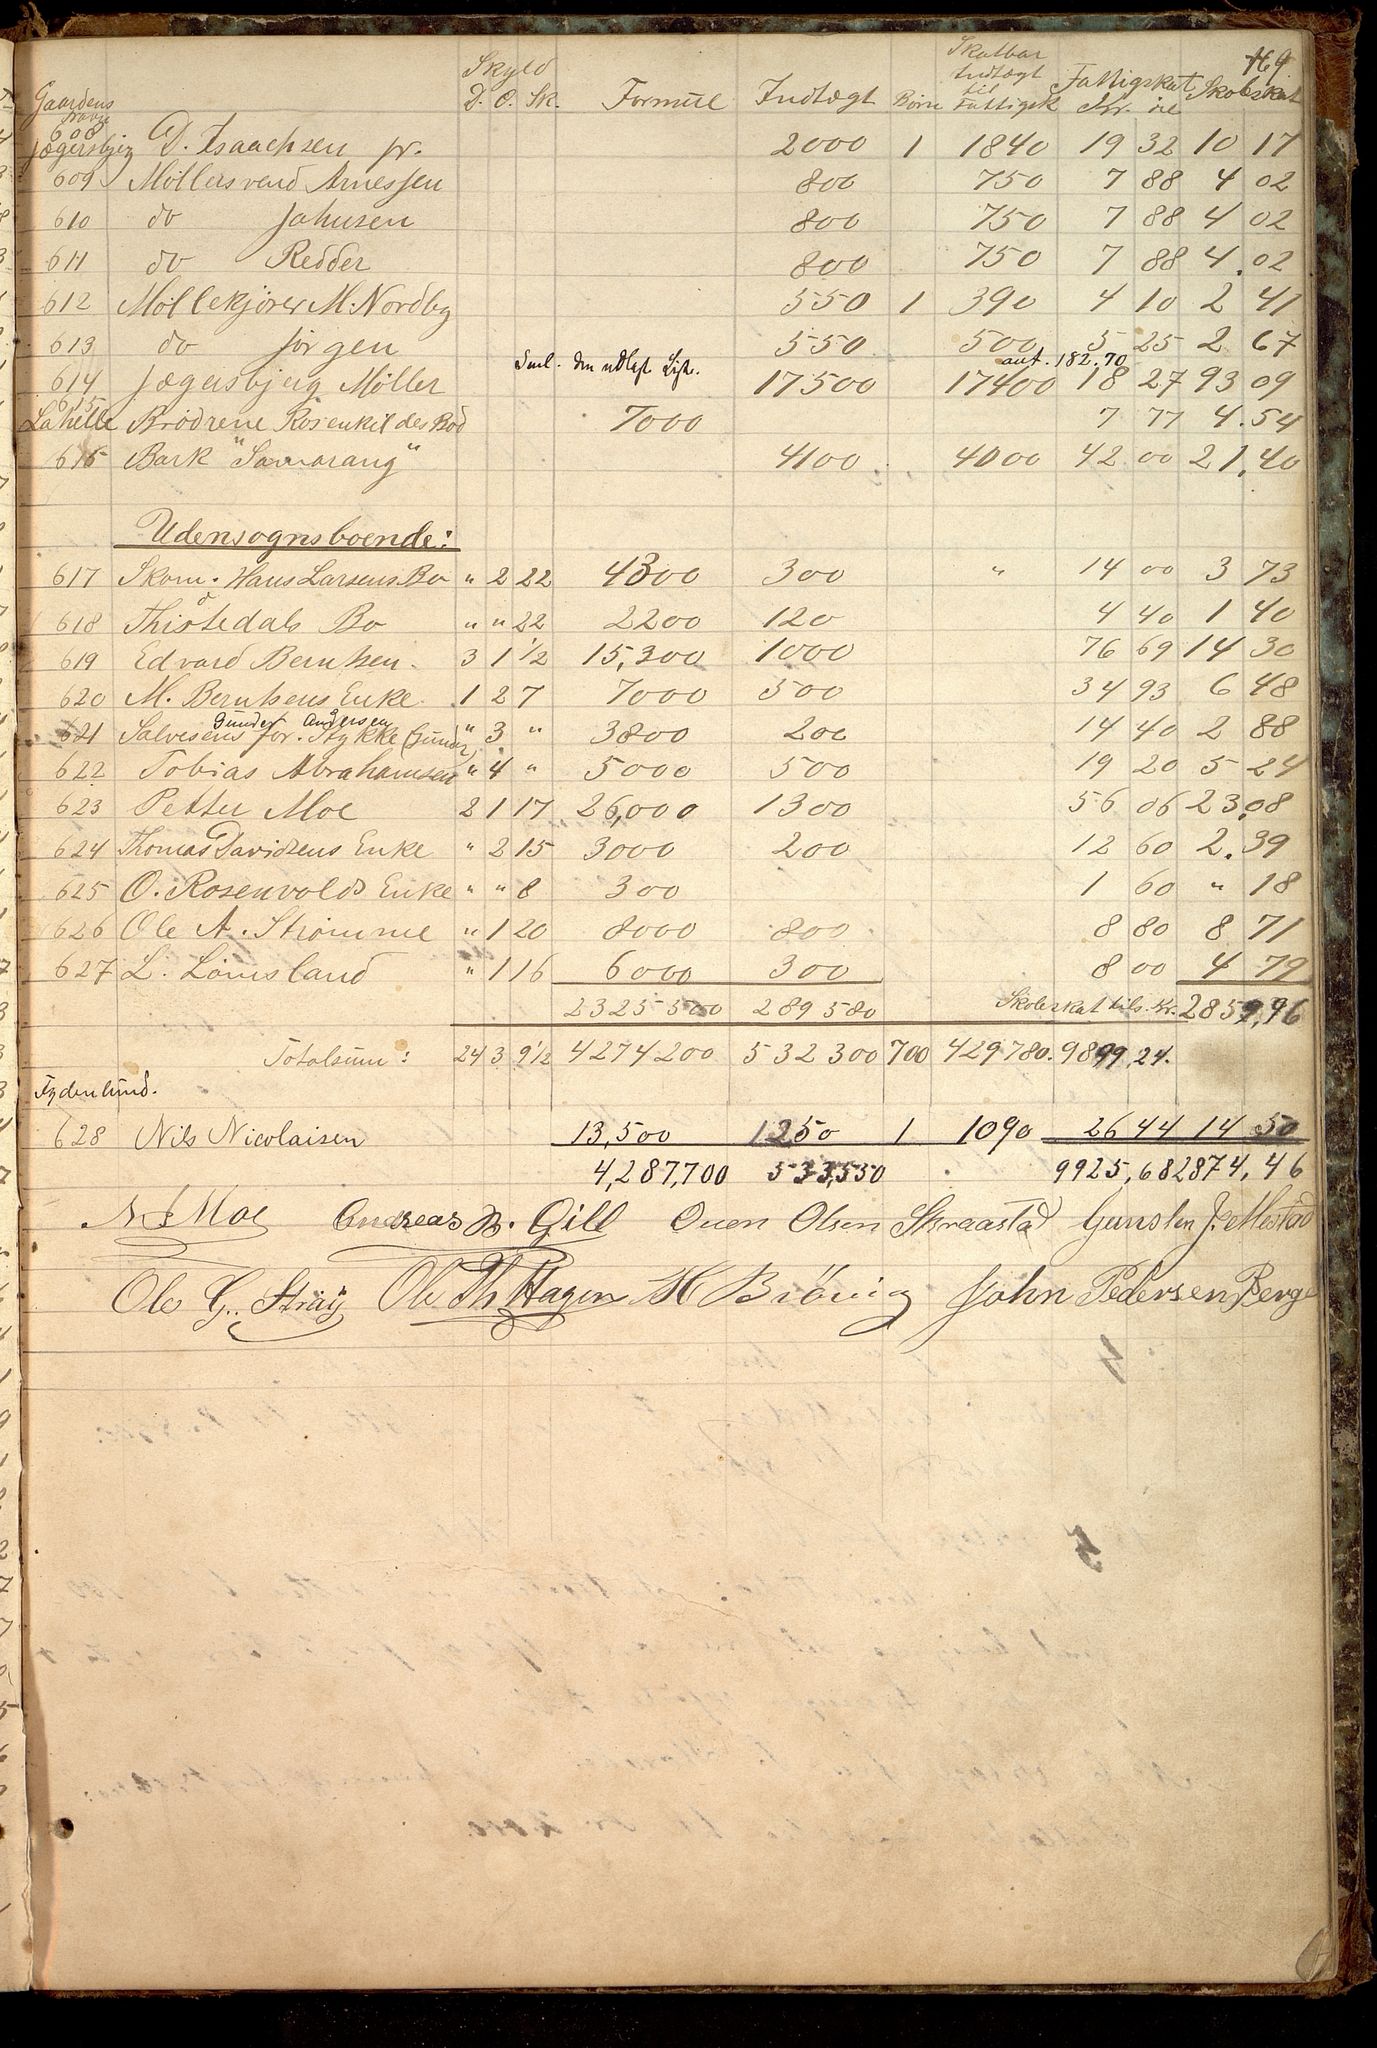 169
Gaardens Navn | Skyld D. O. Sk. | Formue | Indtægt | Børn | Skatbar Indtægt til Fattigsk | Fattigskat Kr. öre | Skoleskat
608 Jægersbjerg D. Isaachsen jr. 2000 1 1840 19 32 10 17
609 Möllersvend Arnessen 800 750 7 88 4 02
610 do Johnsen 800 750 7 88 4 02
611 do Redder 800 750 7 88 4.02
612 Möllekjörer M. Nordby 550 1 390 4 10 2 41
613 do Jörgen 550 500 5 25 2 67
Sml. den udlagt Liste. anf. 182.70
614 Jægersbjerg Möller 17500 17400 18 27 93 09
615 Lahelle Brödrene Rosenkildes Bod 7000 7 77 4.54
616 Bark "Samarang" 4100 4000 42 00 21.40
Udensognsboende:
617 Skom. Hans Larsens Bo " 2 22 4300 300 " 14 00 3 73
618 Thistedals Bo " " 22 2200 120 4 40 1 40
619 Edvard Berntsen. 3 1 1/2 15,300 1000 76 69 14 30
620 M. Berntsens Enke 1 2 7 7000 500 34 93 6 48
Gunder Andersen
621 Salvesens for. Stykke (Gunder) " 3 " 3800 200 14 40 2 88
622 Tobias Abrahamsen " 4 " 5000 500 19 20 5 24
623 Petter Moe 2 1 17 26,000 1300 56 06 23.08
624 Thomas Davidsens Enke " 2 15 3000 200 12 60 2.39
625 O. Rosenvolds Enke " " 8 300 1 60 " 18
626 Ole A. Strömme " 1 20 8000 800 8 80 8 71
627 L. Lömsland " 1 16 6000 300 8 00 4 79
2325500 289580 Skoleskat tils. Kr. 2859,96
Totalsum: 243 9 1/2 4274200 532300 700 429780. 9899,24.
Tydenlund.
628 Nils Nicolaisen 13,500 1250 1 1090 26 44 14 50
4,287,700 533,550 9925,68 2874,46
N J Moe Andreas B. Gill Ouen Olsen Straastad Gunsten J. Mestad
Ole G. Stray Ole Th Hagen H Brövig John Pedersen Berge